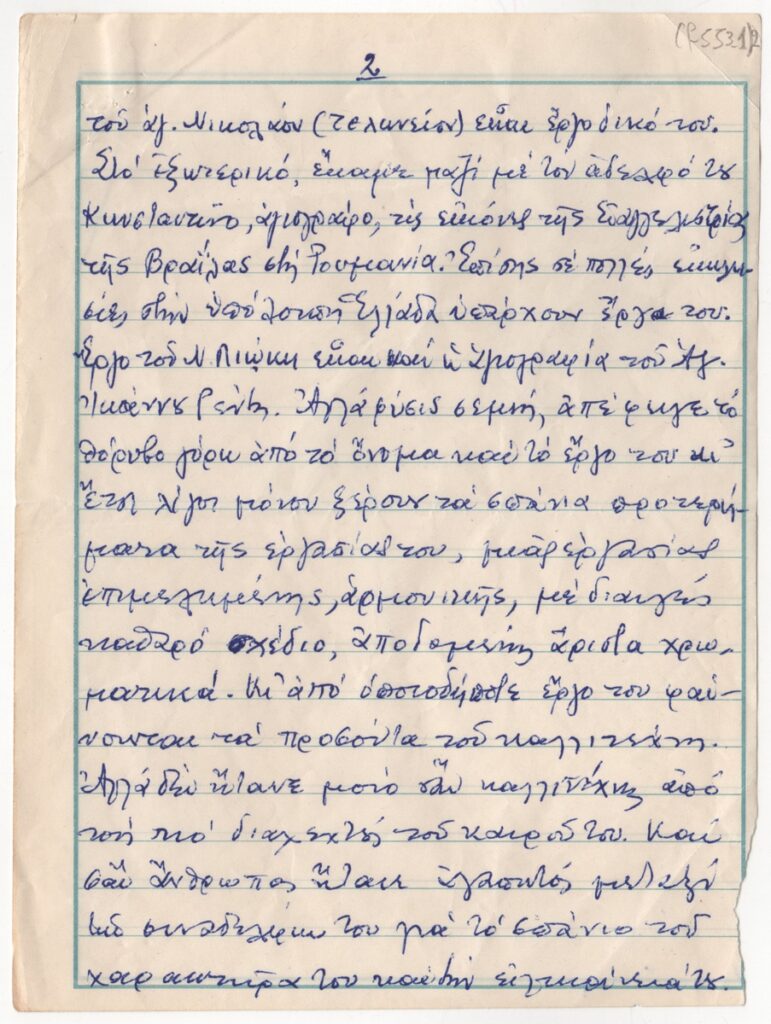 (Ρ5531)2
2
τοῦ ἁγ. Νικολάου (τελωνείου) εἶναι ἔργο δικό του.
Στό ἐξωτερικό, ἔκαμε μαζί μέ τόν ἀδελφό τ8
Κωνσταντῖνο, ἁγιογράφο, τίς εἰκόνες τῆς Εὐαγγελιστρίας
τῆς Βραΐλας στή Ρουμανία. Ἐπίσης σέ πολλές ἐκκλη-
σίες στήν ὑπόλοιπη Ἑλλάδα ὑπάρχουν ἔργα του.
Ἔργο τοῦ Ν. εἶναι καί ἡ ἁγιογραφία τοῦ Ἁγ.
Ἰωάννου Ρέντη. Ἀλλά φύσις σεμνή, ἀπέφευγε τό
θόρυβο γύρω ἀπό τό ὄνομα καί τό ἔργο του κι'
ἔτσι λίγοι μόνον ξέρουν τά σπάνια προτερή-
ματα τῆς ἐργασίας του, μιᾶς ἐργασίας
ἐπιμελημένης, ἁρμονικῆς, μέ διαυγές
καθαρό σχέδιο, ἀποδομένης ἄριστα χρω-
ματικά. Κι' ἀπό ὁποιοδήποτε ἔργο του φαί-
νονται τά προσόντα τοῦ καλλιτέχνη.
Ἀλλά δέν ἤτανε μονο σάν καλλιτέχνης ἀπό
τούς πιό διαλεχτούς τοῦ καιροῦ του. Καί
σάν ἄνθρωπος ἤτανε ἀγαπητός μεταξύ
τῶν συναδέλφων του γιά τό σπάνιο τοῦ
χαρακτῆρα του καί τήν εἰλικρίνειά τ8.